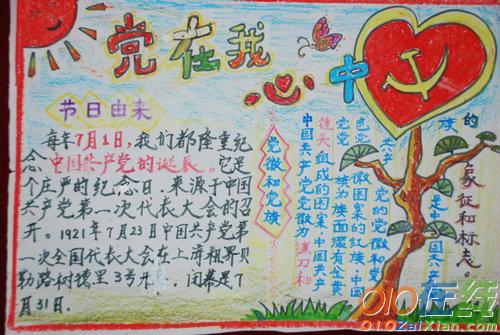 党在我心中
节日由来
每年7月1日,我们都隆重纪
念中国共产党的诞辰。它是
个庄严的纪念日,来源于中国
共产党第一次代表大会的召
开。1921年7月23日中国共产党第
一次全国代表大会在上海租界贝
勒路树德里3号开,闭幕是7
月31日.
党徽和党旗
中国共产党党徽为镰刀和
锤头组成的图案中国共产
党党旗为旗面缀有金黄
色党徽图案的红旗.中国
共产党的党徽和党
旗是中国共产党
的象征和标志.
010在线
010zaiXian.com